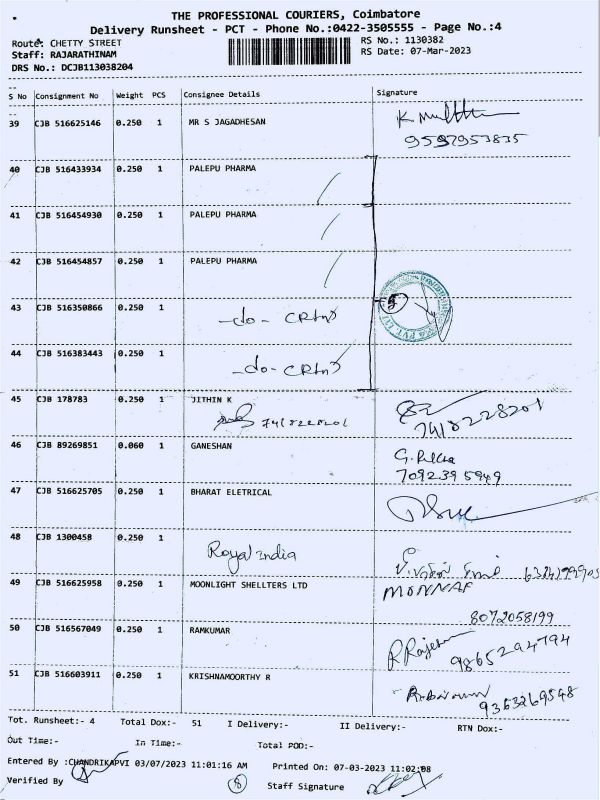 THE PROFESSIONAL COURIERS, Coimbatore
Delivery Runsheet - PCT - Phone No.:0422-3505555 - Page No.:4
Route: CHETTY STREET
RS No.: 1130382
Staff: RAJARATHINAM
RS Date: 07-Mar-2023
DRS No.: DCJB113038204
S No Consignment No Weight PCS Consignee Details Signature
39 CJB 516625146 0.250 1 MR S JAGADHESAN
9597953835
40 CJB 516433934 0.250 1 PALEPU PHARMA
41 CJB 516454930 0.250 1 PALEPU PHARMA
42 CJB 516454857 0.250 1 PALEPU PHARMA
43 CJB 516350866 0.250 1 -do-
5
44 CJB 516383443 0.250 1 -do-
45 CJB 178783 0.250 1 JITHIN K
7418228201 7418228201
46 CJB 89269851 0.060 1 GANESHAN
7092395949
47 CJB 516625705 0.250 1 BHARAT ELETRICAL
48 CJB 1300458 0.250 1 Royal India
49 CJB 516625958 0.250 1 MOONLIGHT SHELLTERS LTD MONNAF
8072058199
50 CJB 516567049 0.250 1 RAMKUMAR R Rajesh
9865294794
51 CJB 516603911 0.250 1 KRISHNAMOORTHY R
9363269548
Tot. Runsheet:- 4 Total Dox:- 51 I Delivery:- II Delivery:- RTN Dox:-
Out Time:- In Time:- Total POD:-
Entered By :CHANDRIKAPVI 03/07/2023 11:01:16 AM Printed On: 07-03-2023 11:02:08
Verified By 8 Staff Signature